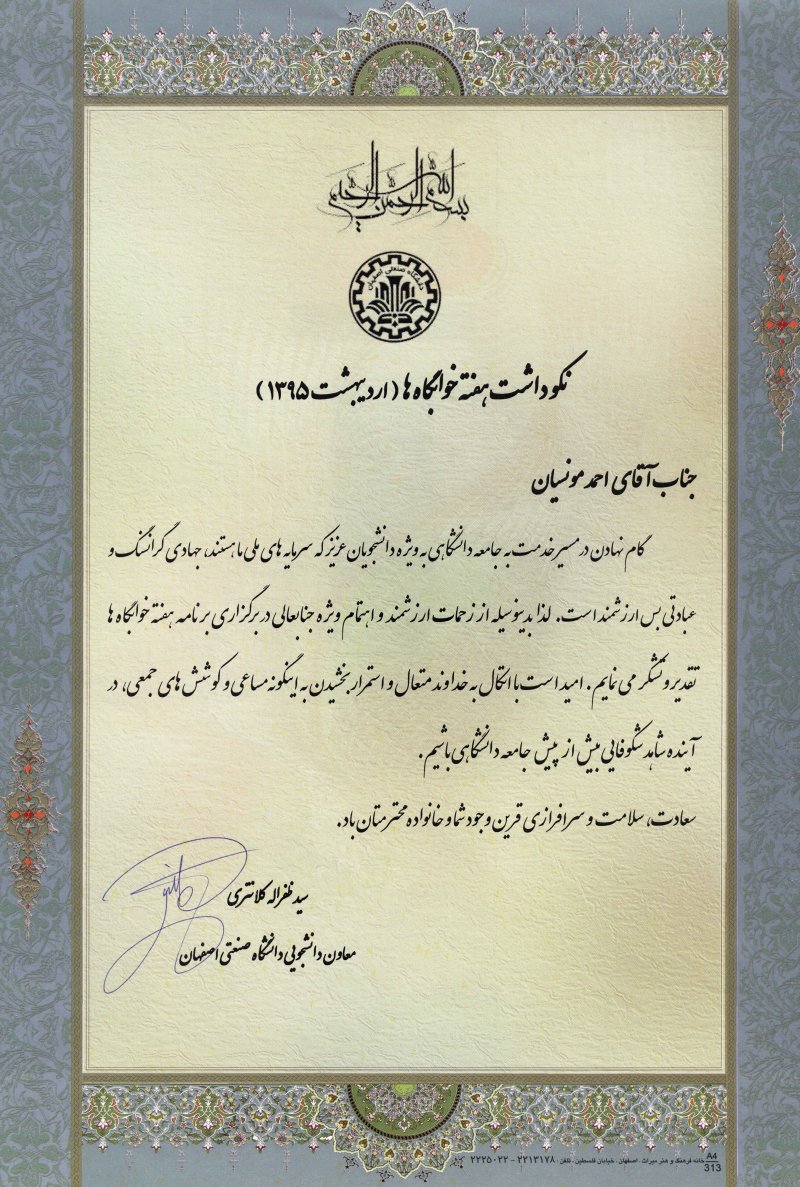 بسم الله الرحمن الرحیم
دانشگاه صنعتی اصفهان
نکوداشت هفته خوابگاه ها (اردیبهشت ۱۳۹۵)
جناب آقای احمد مونسیان
گام نهادن در مسیر خدمت به جامعه دانشگاهی به ویژه دانشجویان عزیز که سرمایه های ملی ما هستند، جهادی گرانسنگ و
عبادتی بس ارزشمند است. لذا بدینوسیله از زحمات ارزشمند و اهتمام ویژه جنابعالی در برگزاری برنامه هفته خوابگاه ها
تقدیر و تشکر می نمایم. امید است با اتکال به خداوند متعال و استمرار بخشیدن به اینگونه مساعی و کوشش های جمعی، در
آینده شاهد شکوفایی بیش از پیش جامعه دانشگاهی باشیم.
سعادت، سلامت و سرافرازی قرین وجود شما و خانواده محترمتان باد.
سید ظفراله کلانتری
معاون دانشجویی دانشگاه صنعتی اصفهان
A4
313
خانه فرهنگ و هنر میراث . اصفهان . خیابان فلسطین . تلفن : ۲۲۱۳۱۷۸ - ۲۲۲۵۰۲۲